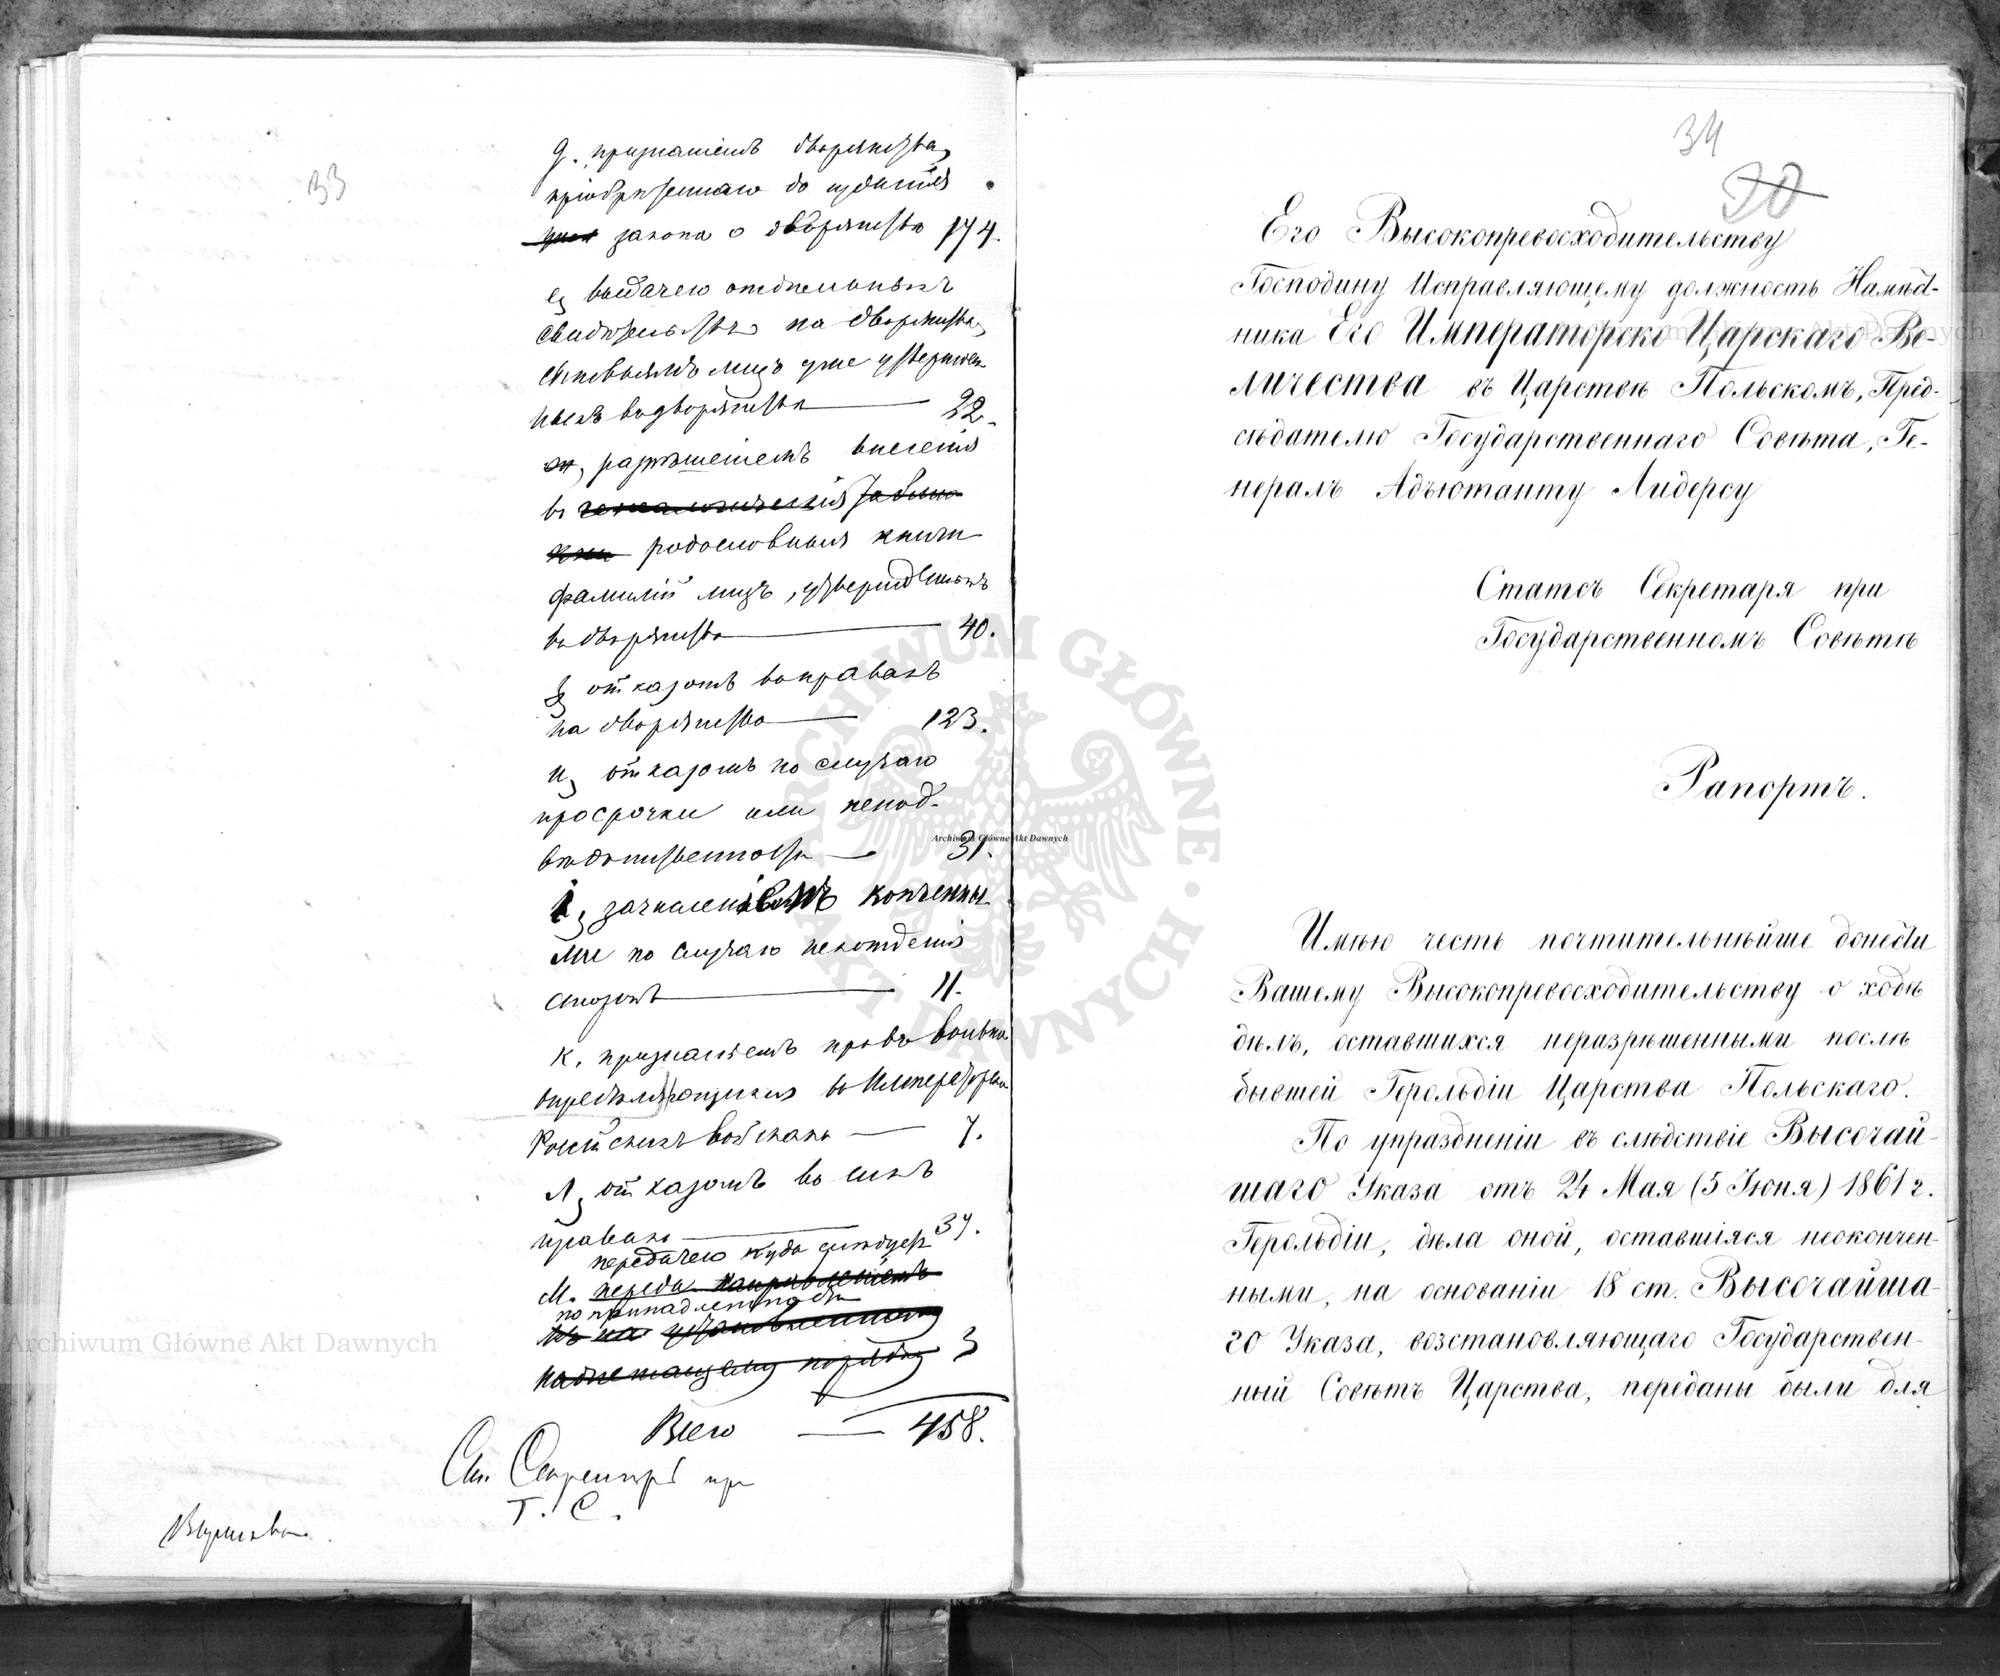 33
д. признаніемъ дворянства,
пріобрѣтеннаго до изданія
закона о дворянствѣ 174.
е, выдачею отдѣльныхъ
свидѣтельствъ на дворянство
сыновьямъ лицъ уже утвержден-
ныхъ въ дворянствѣ 22.
ж, разрѣшеніемъ внесенія
въ генеалогическія
родословныя книги
фамилій лицъ, утвержденныхъ
въ дворянствѣ 40.
з, отказомъ въ правахъ
на дворянство 123.
и, отказомъ по случаю
просрочки или непод-
вѣдомственности 31.
і, зачисленіемъ конченны-
ми по случаю нехожденія
сторонъ 11.
к, признаніемъ правъ вольно-
опредѣляющихся въ Императорско
Россійскихъ войскахъ 7.
л, отказомъ въ сихъ
правахъ 37.
передачею куда слѣдуетъ
м. переда направленіемъ
по принадлежности
надлежащему порядку 3
Всего 458.
Ст. Секретарь при
Г. С.
Archiwum Główne Akt Dawnych
34
20
Его Высокопревосходительству
Господину Исправляющему должность Намѣст-
ника Его Императорско Царскаго Ве-
личества въ Царствѣ Польскомъ, Пред-
сѣдателю Государственнаго Совѣта, Ге-
нералъ Адъютанту Лидерсу
Статсъ Секретаря при
Государственномъ Совѣтѣ
Рапортъ.
Имѣю честь почтительнѣйше донести
Вашему Высокопревосходительству о ходѣ
дѣлъ, оставшихся неразрѣшенными послѣ
бывшей Герольдіи Царства Польскаго.
По упраздненіи въ слѣдствіе Высочай-
шаго Указа отъ 24 Мая (5 Іюня) 1861 г.
Герольдіи, дѣла оной, оставшіяся неокончен-
ными, на основаніи 18 ст. Высочайша-
го Указа, возстановляющаго Государствен-
ный Совѣтъ Царства, переданы были для
Archiwum Główne Akt Dawnych
ARCHIWUM GŁÓWNE AKT DAWNYCH
Archiwum Główne Akt Dawnych